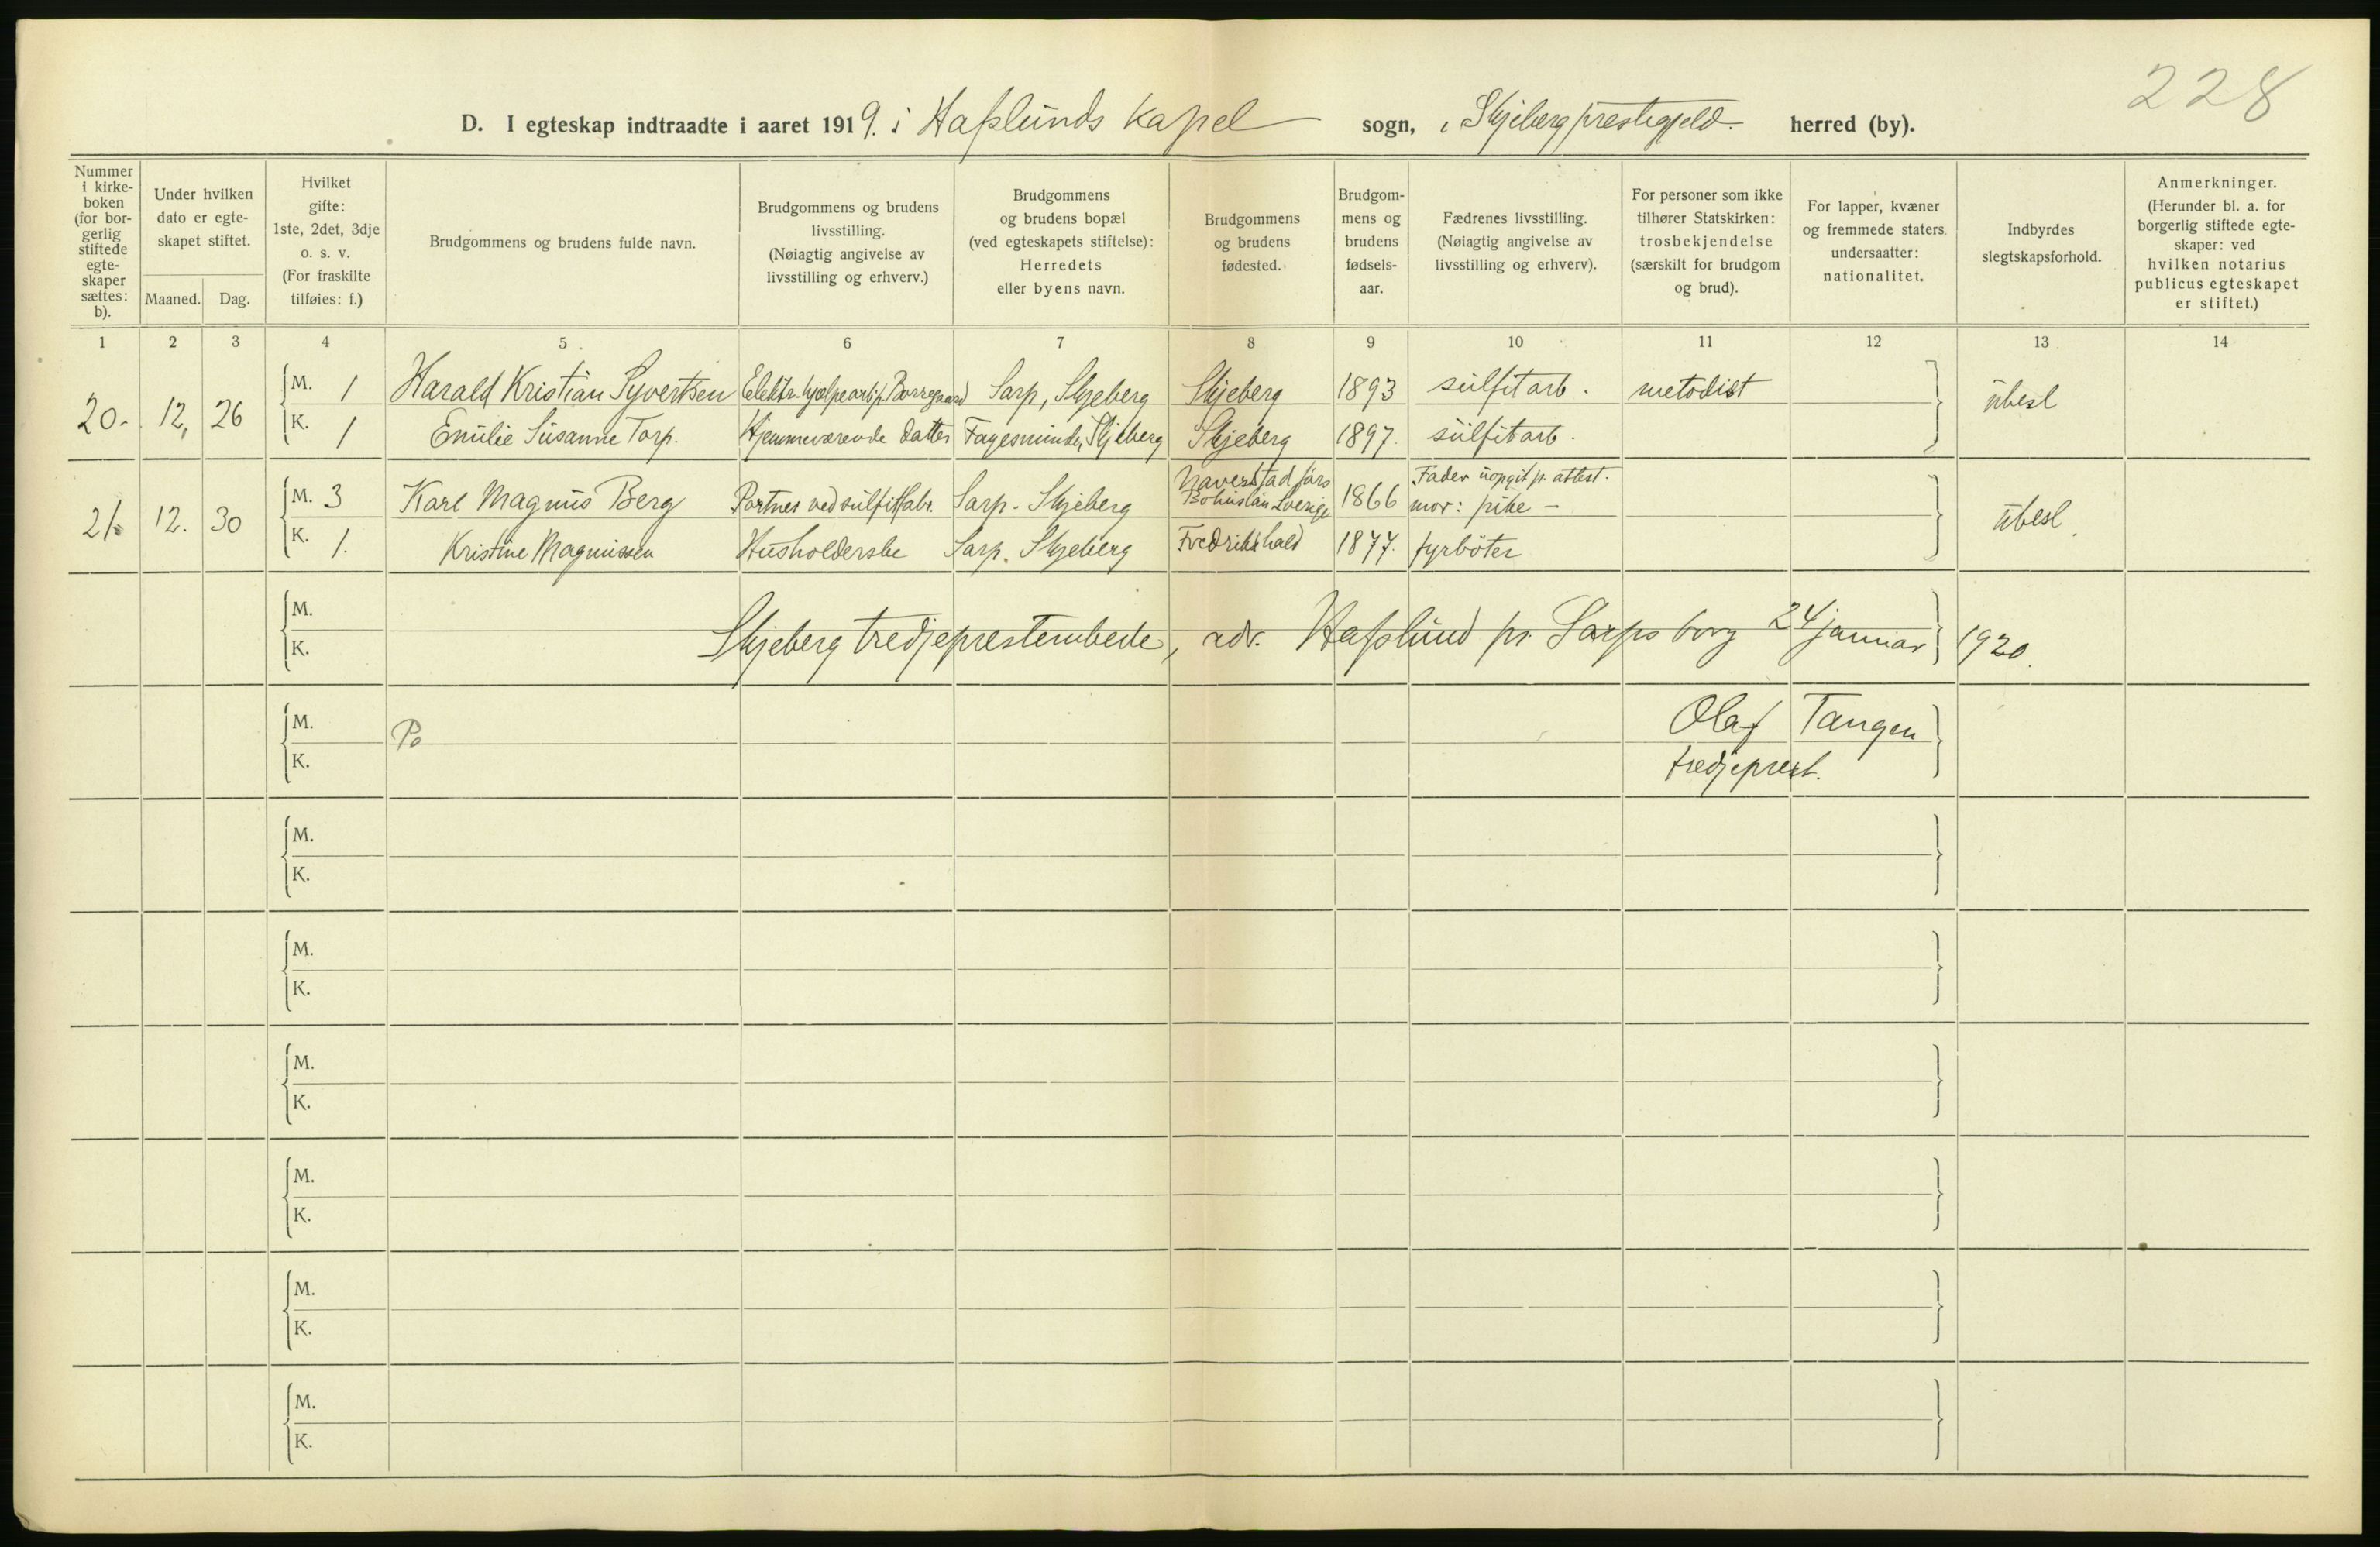 228
D. I egteskap indtraadte i aaret 1919. i Hafslunds Kapel sogn, i Skjeberg prestegjeld herred (by).
Nummer i kirke-boken (for bor-gerlig stiftede egte-skaper sættes: b).
Under hvilken dato er egte-skapet stiftet.
Maaned. Dag.
Hvilket gifte: 1ste, 2det, 3dje o. s. v. (For fraskilte tilføies: f.)
Brudgommens og brudens fulde navn.
Brudgommens og brudens livsstilling. (Nøiagtig angivelse av livsstilling og erhverv.)
Brudgommens og brudens bopæl (ved egteskapets stiftelse): Herredets eller byens navn.
Brudgommens og brudens fødested.
Brudgom-mens og brudens fødsels-aar.
Fædrenes livsstilling. (Nøiagtig angivelse av livsstilling og erhverv).
For personer som ikke tilhører Statskirken: trosbekjendelse (særskilt for brudgom og brud).
For lapper, kvæner og fremmede staters undersaatter: nationalitet.
Indbyrdes slegtskapsforhold.
Anmerkninger. (Herunder bl. a. for borgerlig stiftede egte-skaper: ved hvilken notarius publicus egteskapet er stiftet.)
1 2 3 4 5 6 7 8 9 10 11 12 13 14
20. 12, 26 M. 1 Harald Kristian Syvertsen Elektr. hjælpearb. p. Borregaard Sarp, Skjeberg Skjeberg 1893 sulfitarb. metodist ubesl
K. 1 Emilie Susanne Torp. Hjemmeværende datter Fagesminde, Skjeberg Skjeberg 1897. sulfitarb.
21. 12. 30 M. 3 Karl Magnus Berg Portner ved sulfitfabr. Sarp - Skjeberg Naverstadførs Bohuslän Sverige 1866 Fader uopgit p. attest. mor: pike - ubesl.
K. 1. Kristine Magnussen Husholderske Sarp. Skjeberg Fredrikshald 1877. fyrbøter
M.
Skjeberg tredjeprestembede, adr. Hafslund pr. Sarpsborg 24 januar 1920.
K.
M. Po Olaf Tangen
K. tredjeprest.
M.
K.
M.
K.
M.
K.
M.
K.
M.
K.
M.
K.